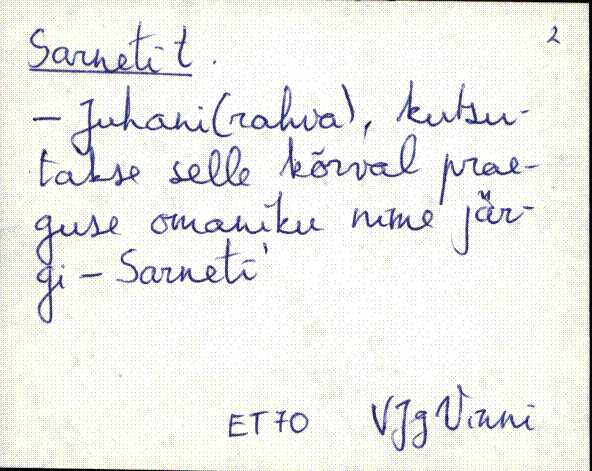 2
Sarneti t.
– Juhani (rahva), kutsu-
takse selle kõrval prae-
guse omaniku nime jär-
gi – Sarneti
ET 70 VJg Vinni